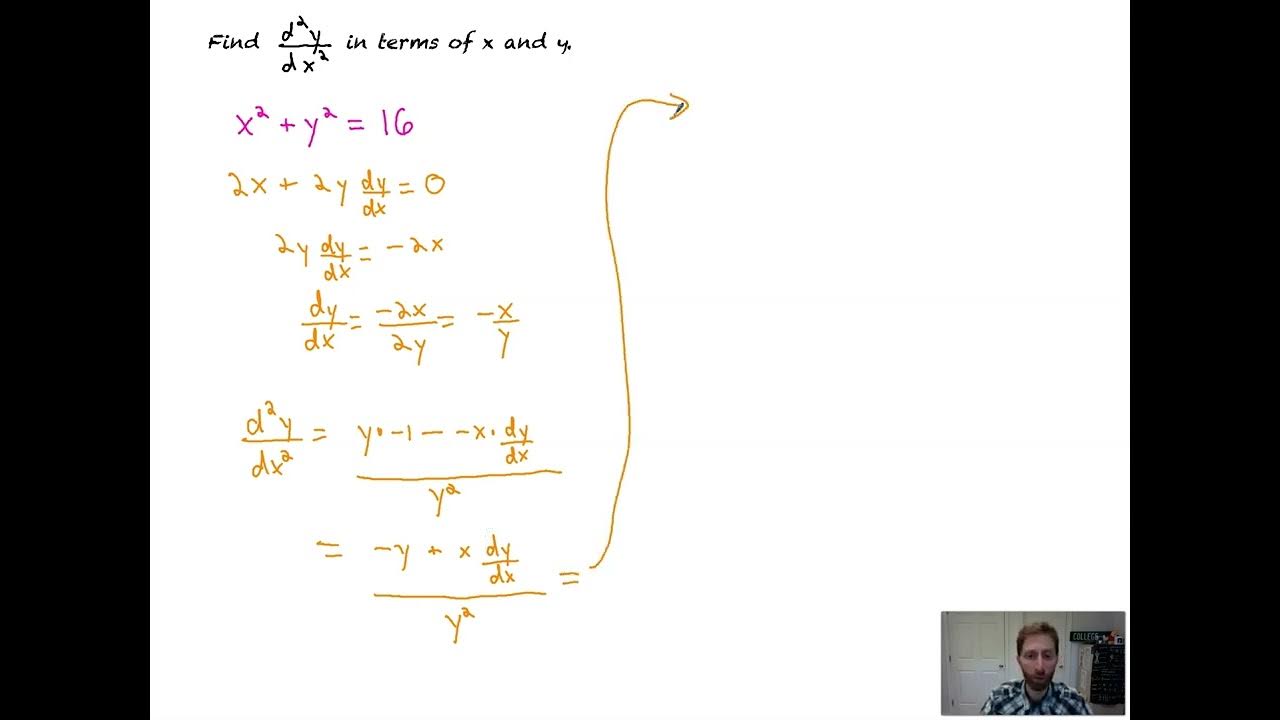 Find d²y/dx² in terms of x and y.
x² + y² = 16
2x + 2y dy/dx = 0
2y dy/dx = -2x
dy/dx = -2x/2y = -x/y
d²y/dx² = (y·-1 - -x·dy/dx)/y²
= (-y + x dy/dx)/y² =
COLLEGE